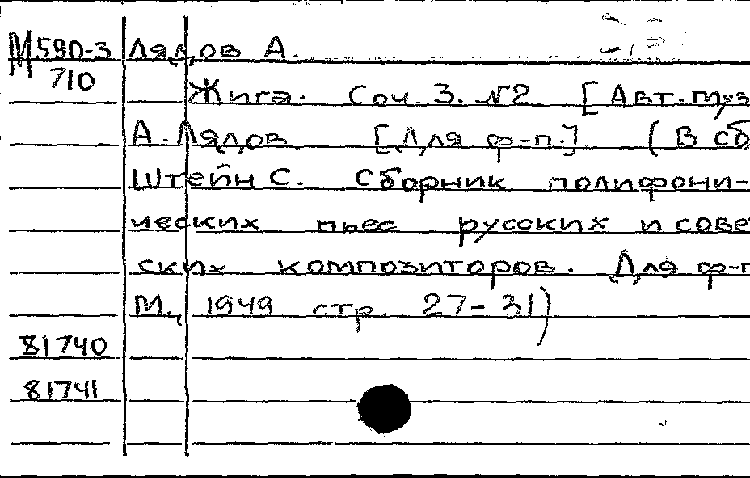 М590-3 Лядов А.
710
Жига. Соч. 3. №2 [Авт. муз
А. Лядов [Для ф-п.] (В сб
Штейн С. Сборник полифони-
ческих пьес русских и сове
ских композиторов. Для ф-п
М., 1949 стр. 27-31)
81740
81741